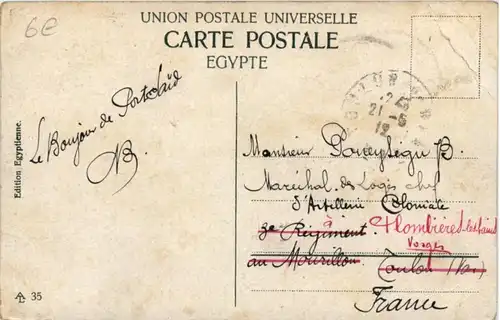 6€
UNION POSTALE UNIVERSELLE
CARTE POSTALE
EGYPTE
Le Bonjour de Portsaïd
B.
Edition Egyptienne.
35
21-6
12
Monsieur B.
Maréchal des Logis chef
d'Artillerie Coloniale
3e Régiment à Plombières-les-Bains
Vosges
au Mourillon Toulon (Var)
France